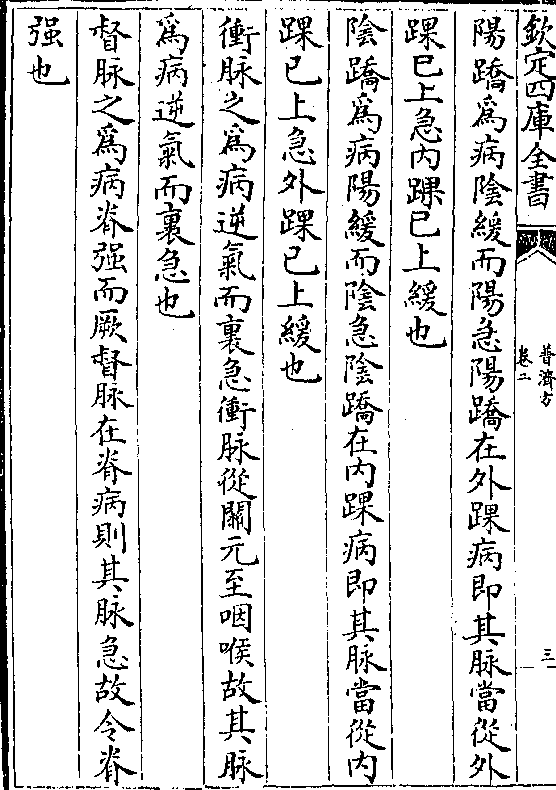 欽定四庫全書
普濟方
卷二
三
陽蹻為病陰緩而陽急陽蹻在外踝病即其脉當從外
踝已上急内踝已上緩也
陰蹻為病陽緩而陰急陰蹻在内踝病即其脉當從内
踝已上急外踝已上緩也
衝脉之為病逆氣而裏急衝脉從關元至咽喉故其脉
為病逆氣而裏急也
督脉之為病脊强而厥督脉在脊病則其脉急故令脊
强也